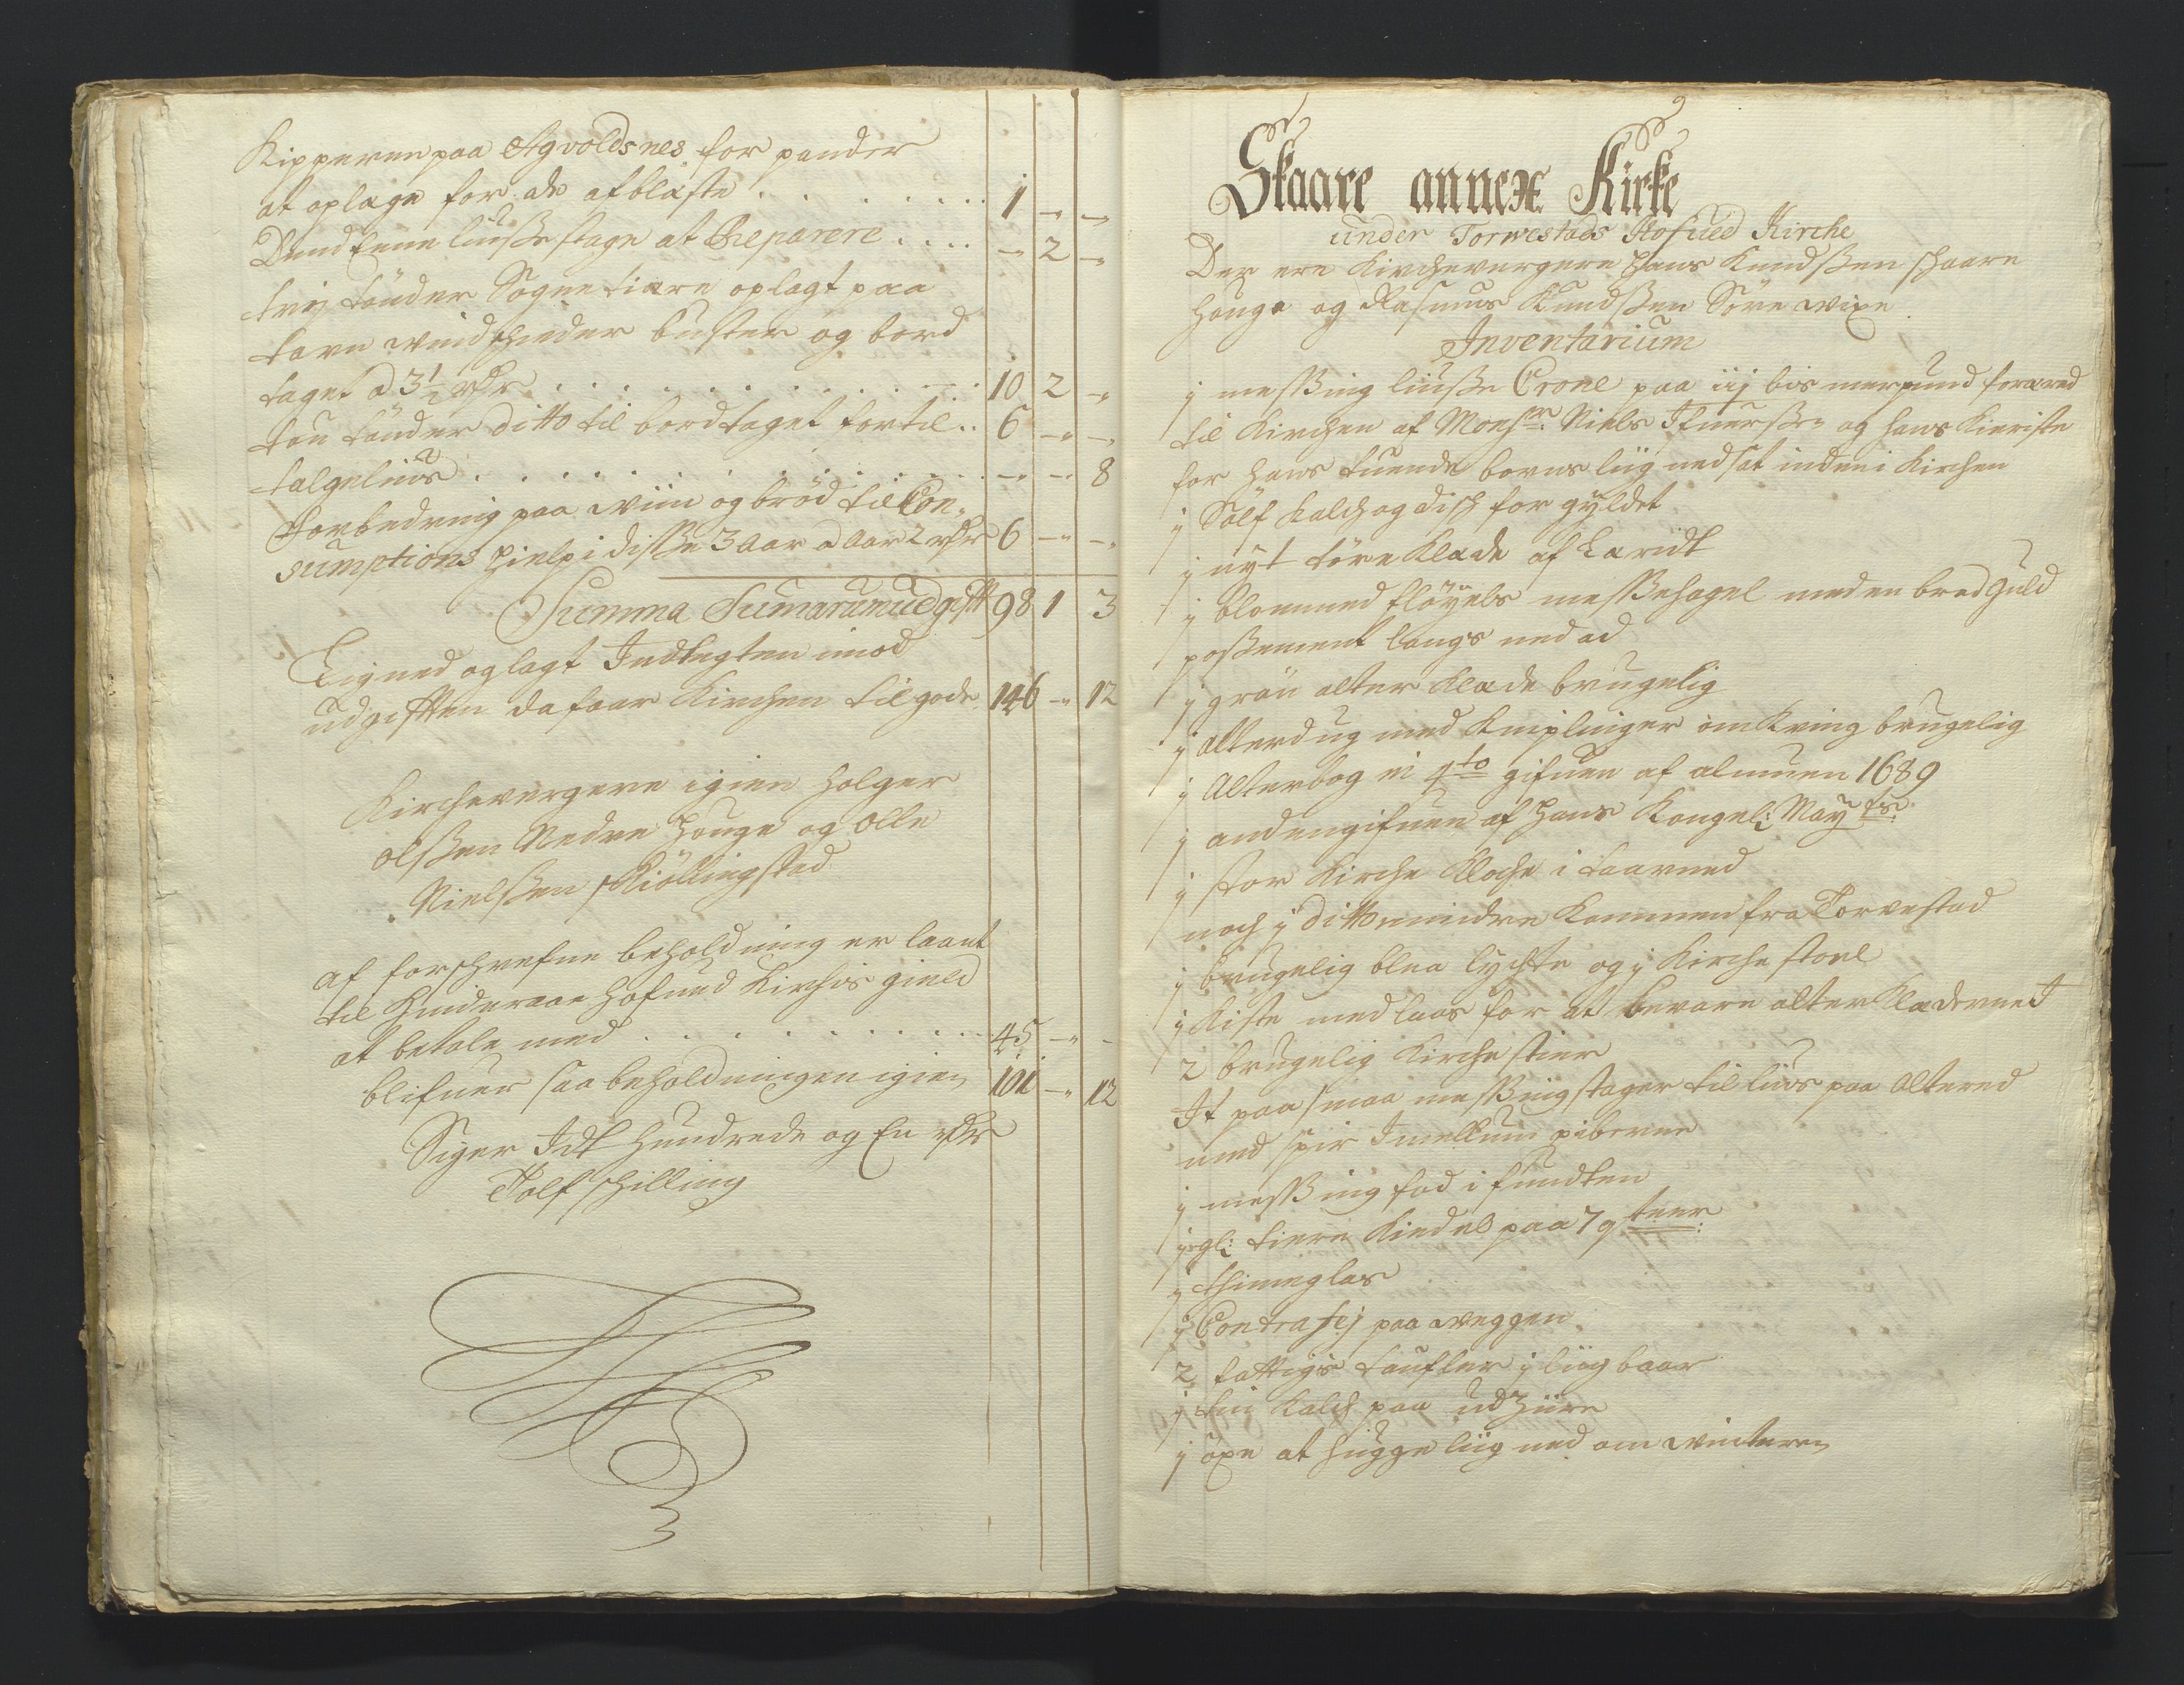 Kipperen paa Agvoldsnes for pander
at oplage for de afblaste . . . . . . . . 1 - -
Dend Eene liuße stage at Reparere . . . . - 2 -
trej tønder Sogne tiære oplagt paa
tarn windscheder buster og bord
taget a 3½ rdr . . . . . . . . . . . 10 2 -
tou tønder ditto til bordtaget for til . . 6 - -
talgelius . . . . . . . . . . . . . - - 8
Forbedring paa wiin og brød til Con-
sumptions hielp i disse 3 aar a aar 2 rdr 6 - -
Summa Sumarum udgifft 98 1 3
Ligned og lagt Indtegten imod
udgifften da faar Kirchen til gode 146 - 12
Kirchevergere igien Holger
olßen Nedre Houge og olle
Nielßen Skiøllingstad
af forschrefne beholdning er laant
til Hinderaae Hofued Kirches gield
at betale med . . . . . . . . . . . 45 - -
blifuer saa beholdningen igien 101 - 12
Siger Idt Hundrede og En rdr
Tolf schilling
Skaare annex Kirke
under Torwestads Hofued Kirche
Der ere Kirchevergere Hans Knudßen schaare
Houge og Rasmus Knudßen Søre wixe
Inventarium
j meßing liuße Crone paa iij bismerpund foræred
til Kirchen af Monsr. Niels Ifuerßen og hans Kieriste
for hans tuende børns liig nedsat inden i Kirchen
j Sølf Kalch og disch for gyldet
j nyt tøre Klæde af Laridt
j blommed fløyels meßehagel med en bred guld
poßement langs ned ad
j grøn alter Klæde brugelig
j alterdug med Kniplinger omkring brugelig
j alterbog in 4to gifuen af almuen 1689
j anden gifuen af Hans Kongel: Maytts:
j stor Kirche Klocke i taarned
noch j ditto mindre kommen fra Torvestad
j brugelig blea lychte og j Kirche stoel
j Kiste med laas for at bevare alter Klæderned
2 brugelig Kirche stier
It paa smaa meßingstager til lius paa alteret
med spir Imellum piberne
j meßing fad i fundten
j gl: tiere Kiedel paa 7 q teer:
j thimeglas
j Contrafej paa weggen
2 fattigs taufler j liig baar
j tin Kalch paa ud Ziire
j øxe at hugge liig ned om winteren